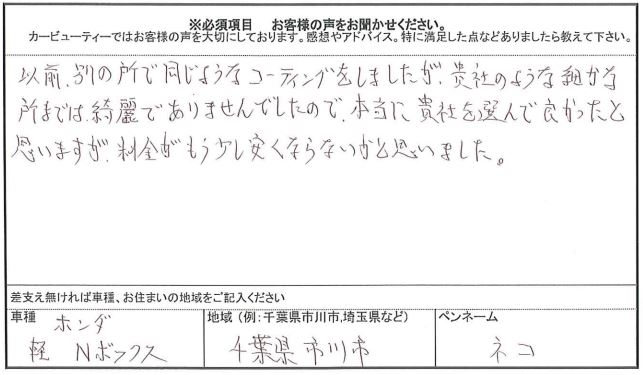 ※必須項目　お客様の声をお聞かせください。
カービューティーではお客様の声を大切にしております。感想やアドバイス。特に満足した点などありましたら教えて下さい。
以前、別の所で同じようなコーティングをしましたが、貴社のような細かな
所までは綺麗でありませんでしたので、本当に貴社を選んで良かったと
思いますが、料金がもう少し安くならないかと思いました。
差支え無ければ車種、お住まいの地域をご記入ください
車種 ホンダ
軽 Nボックス
地域（例：千葉県市川市,埼玉県など）
千葉県市川市
ペンネーム
ネコ